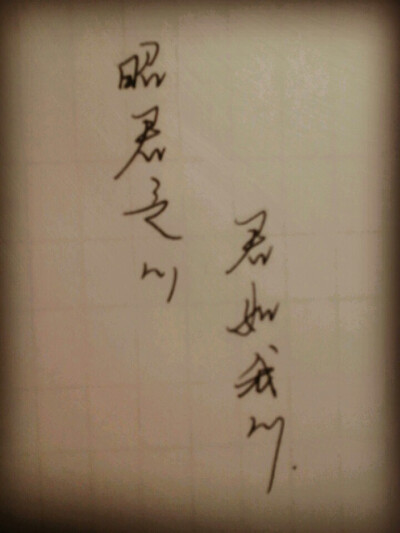 昭君之心
君如我心.